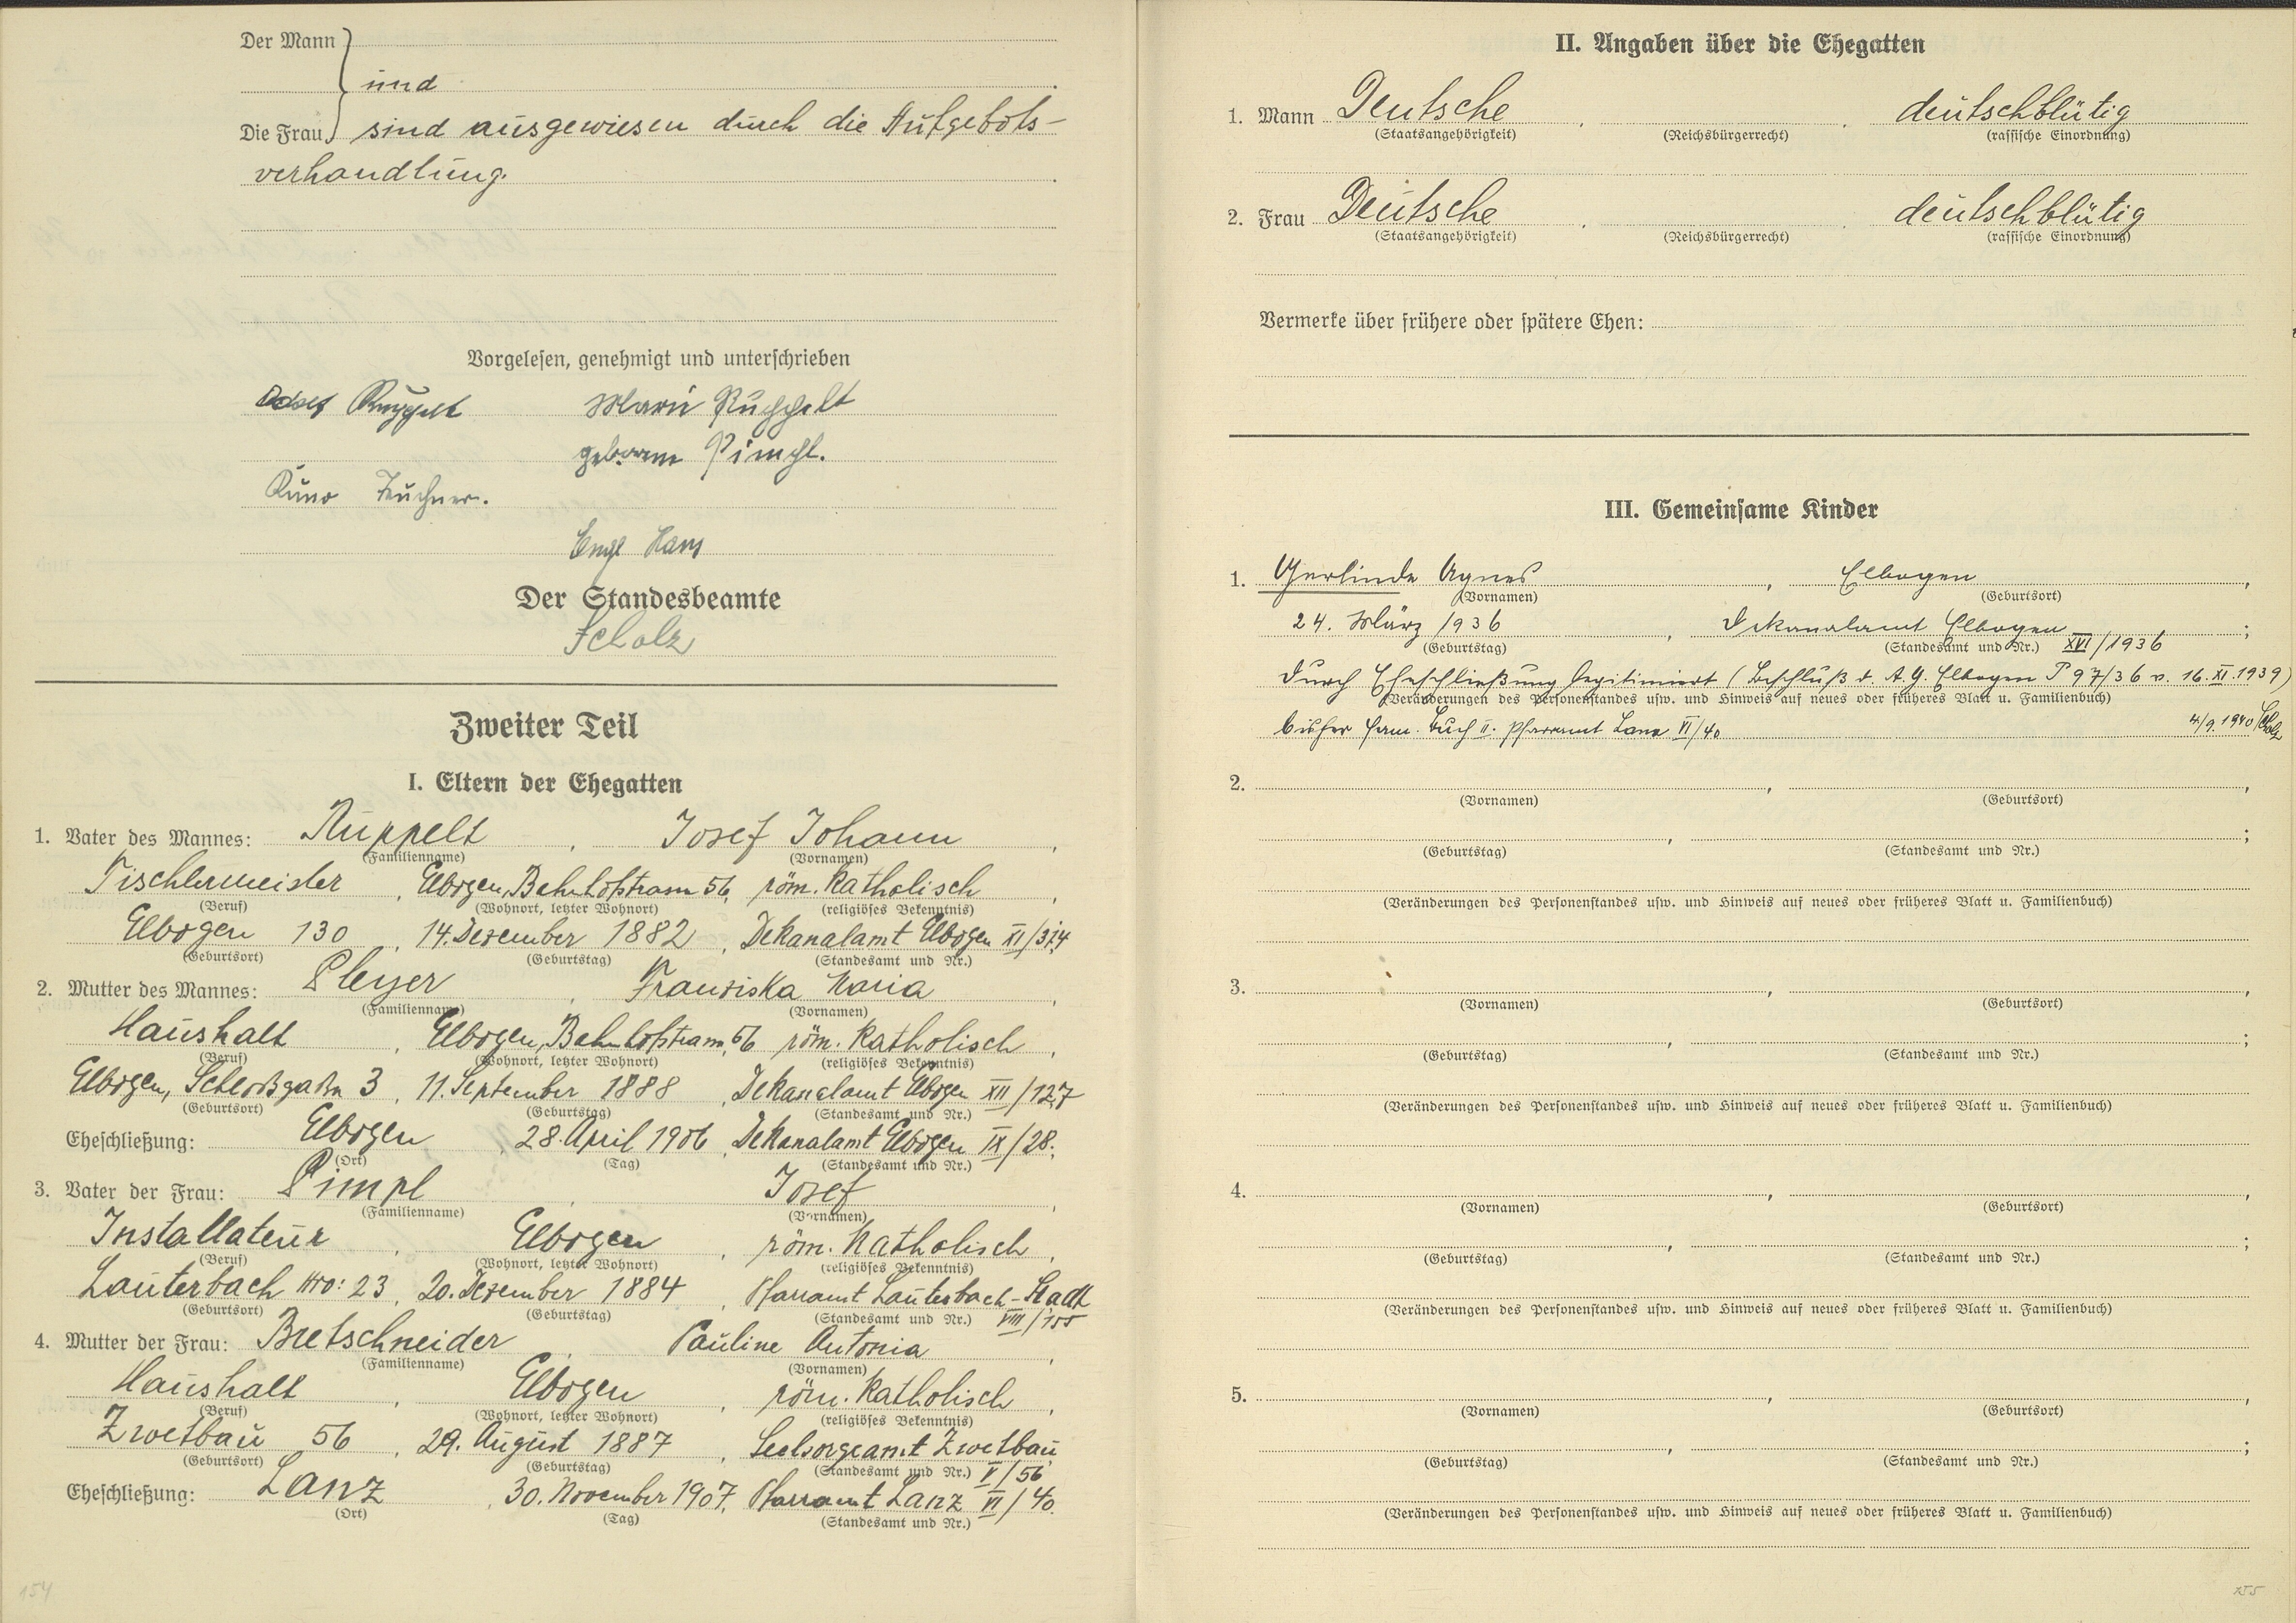 Der Mann
und
Die Frau sind ausgewiesen durch die Aufgebots-
verhandlung.
Vorgelesen, genehmigt und unterschrieben
Josef Ruppelt Marie Ruppelt
geborene Pimpl.
Kuno Teuchner.
Engl Hans
Der Standesbeamte
Scholz
Zweiter Teil
I. Eltern der Ehegatten
1. Vater des Mannes: Ruppelt , Josef Johann ,
(Familienname) (Vornamen)
Tischlermeister , Elbogen, Bahnhofstrasse 56, röm. katholisch ,
(Beruf) (Wohnort, letzter Wohnort) (religiöses Bekenntnis)
Elbogen 130 , 14. Dezember 1882 , Dekanalamt Elbogen XI/314
(Geburtsort) (Geburtstag) (Standesamt und Nr.)
2. Mutter des Mannes: Pleyer , Franziska Maria ,
(Familienname) (Vornamen)
Haushalt , Elbogen, Bahnhofstrasse 56 röm. katholisch ,
(Beruf) (Wohnort, letzter Wohnort) (religiöses Bekenntnis)
Elbogen, Schloßgasse 3 , 11. September 1888 , Dekanalamt Elbogen XII/127
(Geburtsort) (Geburtstag) (Standesamt und Nr.)
Eheschließung: Elbogen , 28. April 1906 , Dekanalamt Elbogen IX/28.
(Ort) (Tag) (Standesamt und Nr.)
3. Vater der Frau: Pimpl , Josef ,
(Familienname) (Vornamen)
Installateur , Elbogen , röm. katholisch ,
(Beruf) (Wohnort, letzter Wohnort) (religiöses Bekenntnis)
Lauterbach Nro: 23 , 20. Dezember 1884 , Pfarramt Lauterbach-Stadt
(Geburtsort) (Geburtstag) (Standesamt und Nr.) VIII/155
4. Mutter der Frau: Bretschneider , Pauline Antonia ,
(Familienname) (Vornamen)
Haushalt , Elbogen , röm. katholisch ,
(Beruf) (Wohnort, letzter Wohnort) (religiöses Bekenntnis)
Zwetbau 56 , 29. August 1887 , Seelsorgeamt Zwetbau
(Geburtsort) (Geburtstag) (Standesamt und Nr.) V/56
Eheschließung: Lanz , 30. November 1907, Pfarramt Lanz VI/40.
(Ort) (Tag) (Standesamt und Nr.)
154
II. Angaben über die Ehegatten
1. Mann Deutsche , , deutschblütig
(Staatsangehörigkeit) (Reichsbürgerrecht) (rassische Einordnung)
2. Frau Deutsche , , deutschblütig
(Staatsangehörigkeit) (Reichsbürgerrecht) (rassische Einordnung)
Vermerke über frühere oder spätere Ehen:
III. Gemeinsame Kinder
1. Gerlinde Agnes , Elbogen ,
(Vornamen) (Geburtsort)
24. März 1936 , Dekanalamt Elbogen ;
(Geburtstag) (Standesamt und Nr.) XVI/1936
durch Eheschließung legitimiert (Beschluß d. A. G. Elbogen P 97/36 v. 16. XI. 1939)
(Veränderungen des Personenstandes usw. und Hinweis auf neues oder früheres Blatt u. Familienbuch)
bisher Fam. Buch II. Pfarramt Lanz VI/40 4/9. 1940 Scholz
2. , ,
(Vornamen) (Geburtsort)
, ;
(Geburtstag) (Standesamt und Nr.)
(Veränderungen des Personenstandes usw. und Hinweis auf neues oder früheres Blatt u. Familienbuch)
3. , ,
(Vornamen) (Geburtsort)
, ;
(Geburtstag) (Standesamt und Nr.)
(Veränderungen des Personenstandes usw. und Hinweis auf neues oder früheres Blatt u. Familienbuch)
4. , ,
(Vornamen) (Geburtsort)
, ;
(Geburtstag) (Standesamt und Nr.)
(Veränderungen des Personenstandes usw. und Hinweis auf neues oder früheres Blatt u. Familienbuch)
5. , ,
(Vornamen) (Geburtsort)
, ;
(Geburtstag) (Standesamt und Nr.)
(Veränderungen des Personenstandes usw. und Hinweis auf neues oder früheres Blatt u. Familienbuch)
155